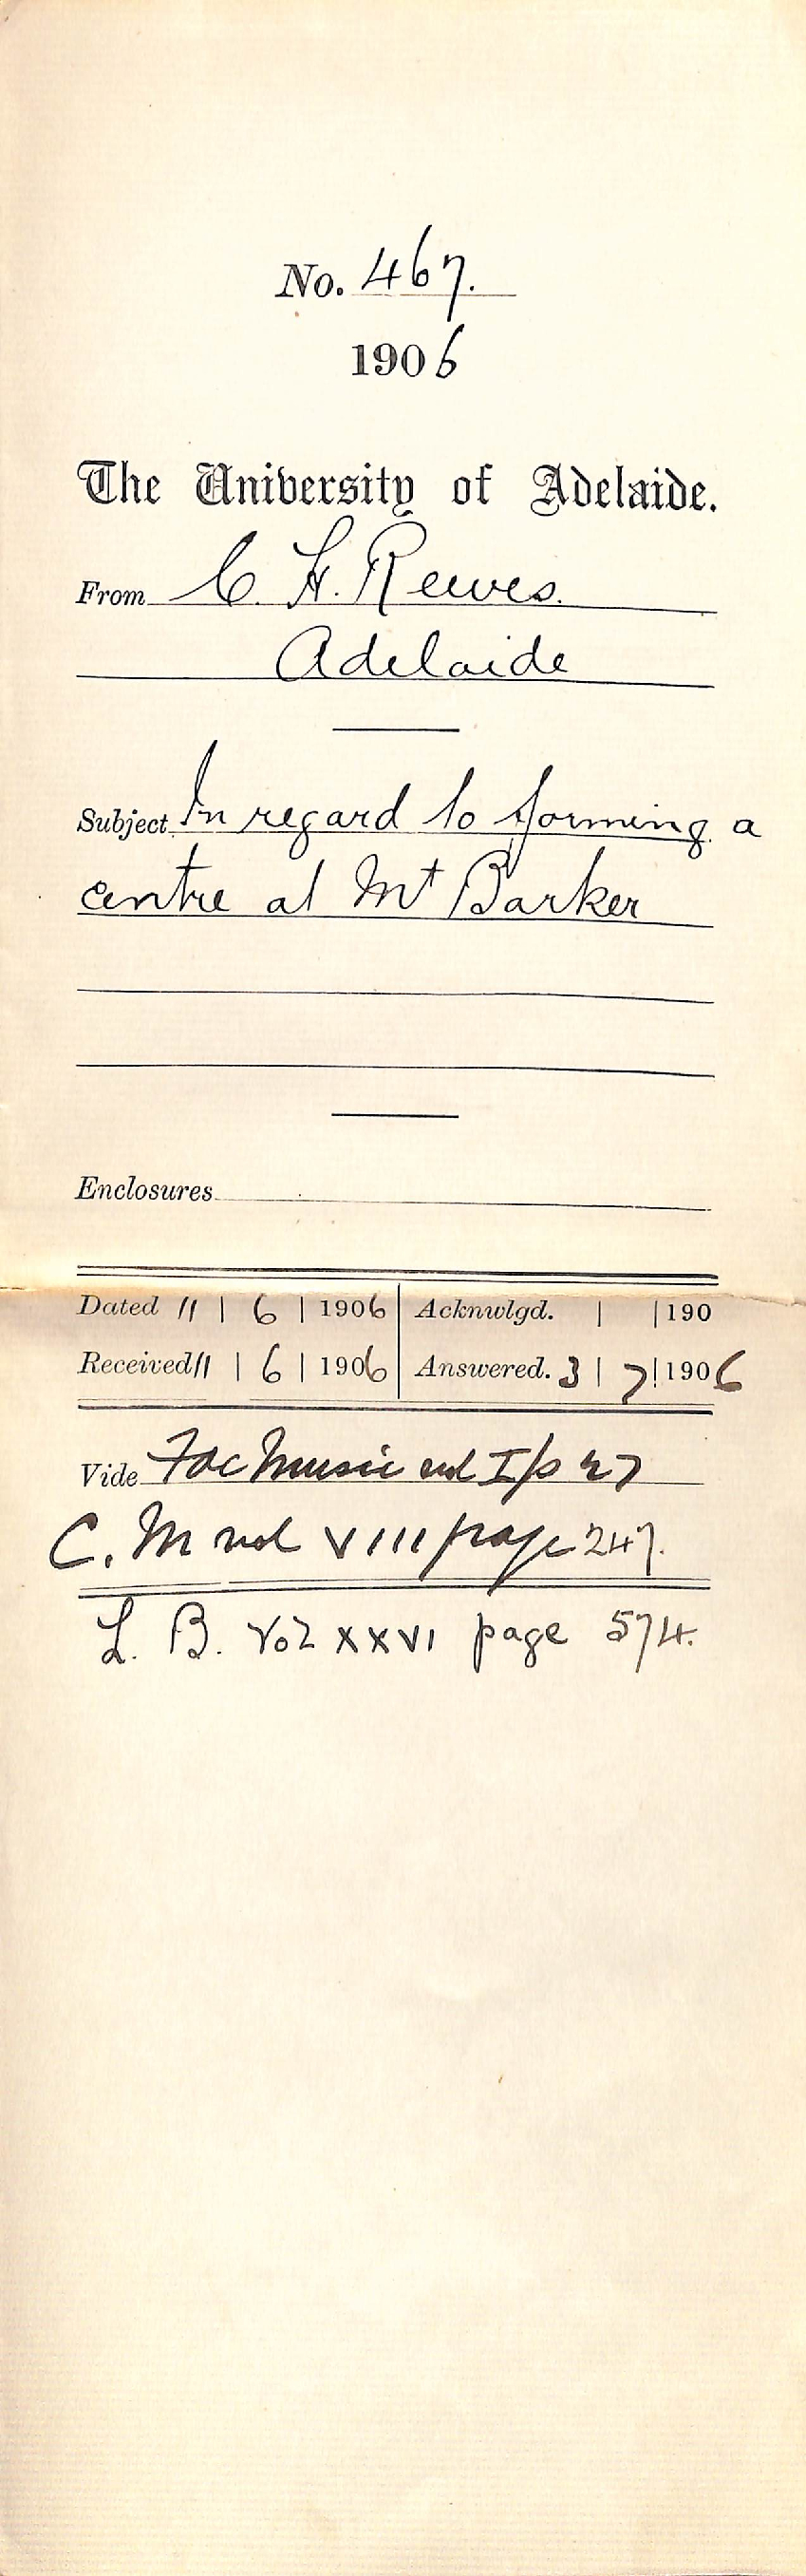 No. 467.
1906
The University of Adelaide.
From C. H. Reeves.
Adelaide
Subject In regard to forming a
centre at Mt Barker
Enclosures
Dated 11 | 6 | 1906 Acknwlgd. | | 190
Received 11 | 6 | 1906 Answered. 3 | 7 | 1906
Vide Fac Music vol I p
C. M vol VIII page 247.
L. B. Vol XXVI page 574.